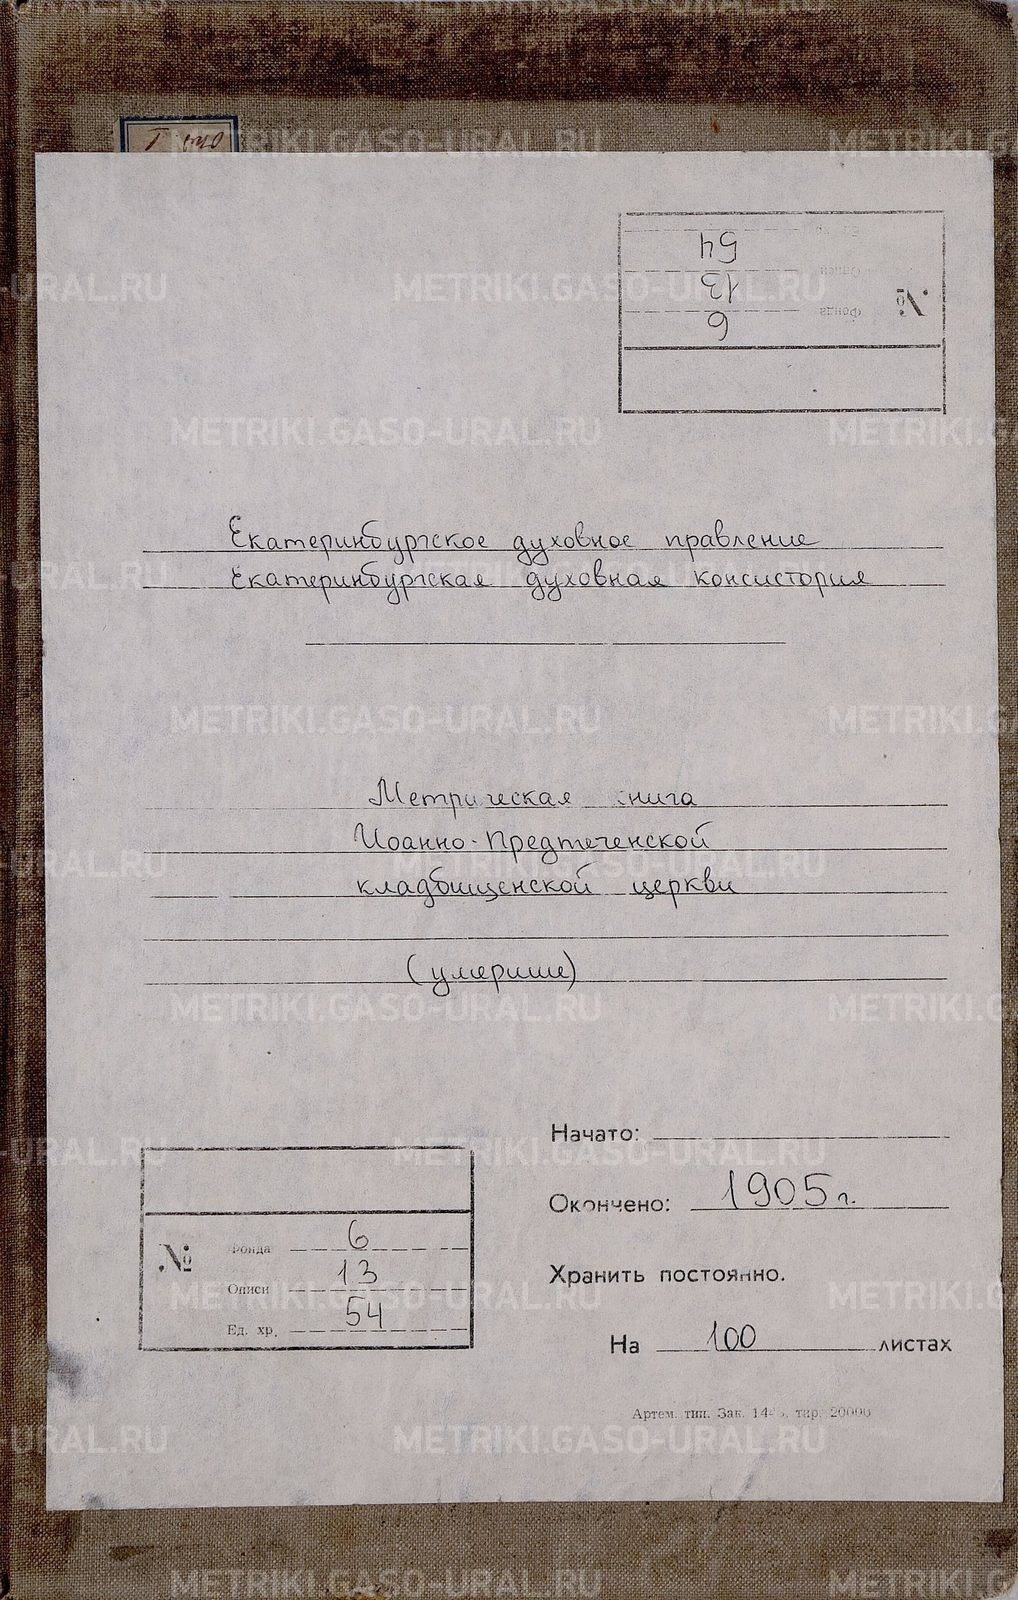 Ед. хр. 54
Описи 13
№ Фонда 6
Екатеринбургское духовное правление
Екатеринбургская духовная консистория
Метрическая книга
Иоанно-Предтеченской
кладбищенской церкви
(умершие)
Начато:
Окончено: 1905 г.
Хранить постоянно.
На 100 листах
№ Фонда 6
Описи 13
Ед. хр. 54
Артем. тип. Зак. тир. 20000
METRIKI.GASO-URAL.RU